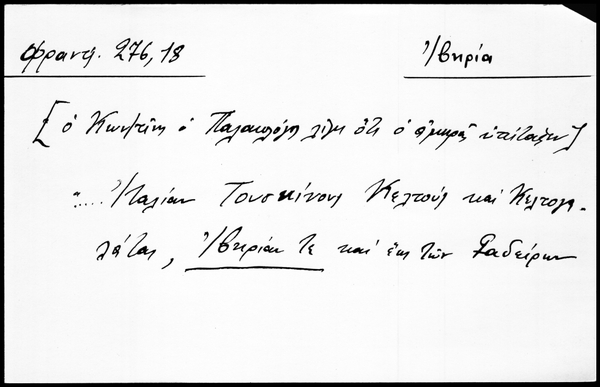 Φραντζ. 276,18
Ἰβηρία
[ὁ Κων/τῖνος ὁ Παλαιολόγος λέγει ὅτι ὁ ἀμηρᾶς ὑπέταξεν]
"..... Ἰταλίαν Τουσκίνους Κελτούς καί Κελτογα-
λάτας, Ἰβηρίαν τε καί ἕως τῶν Γαδείρων